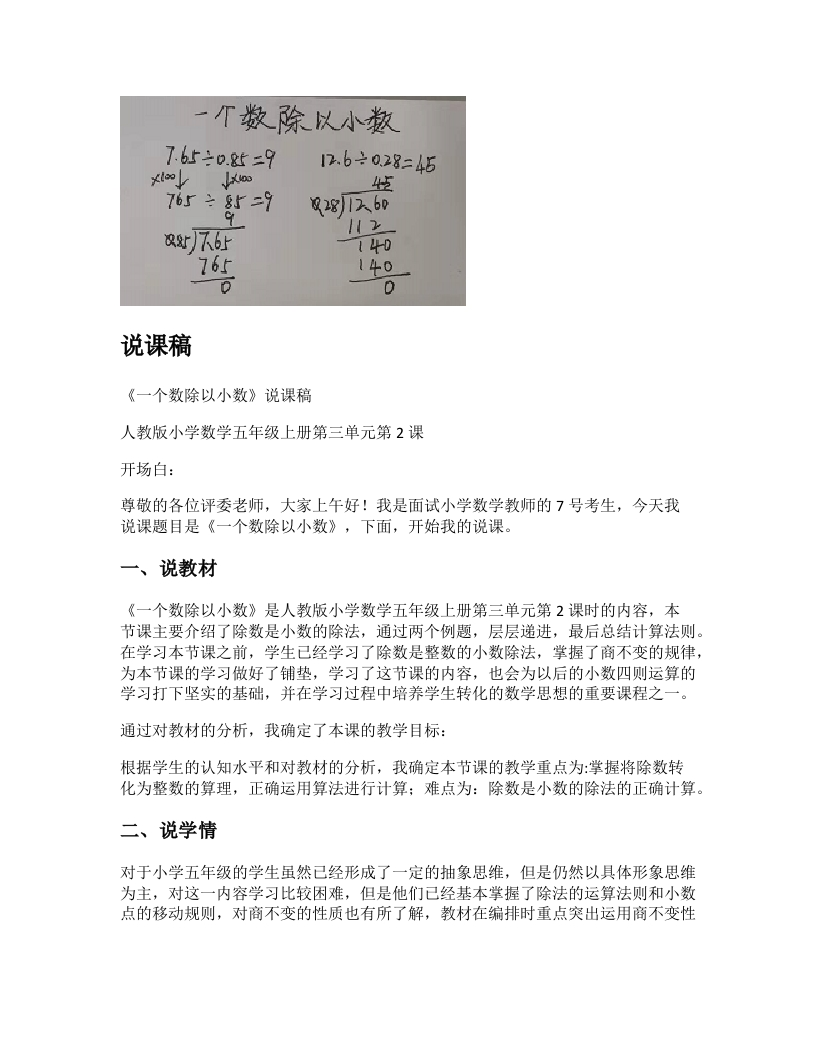 一个数除以小数
7.65÷0.85=9 12.6÷0.28=45
×100↓ ↓×100 45
765 ÷ 85=9 0.28)12.60
9 112
0.85)7.65 140
765 140
0 0
说课稿
《一个数除以小数》说课稿
人教版小学数学五年级上册第三单元第 2 课
开场白：
尊敬的各位评委老师，大家上午好！我是面试小学数学教师的 7 号考生，今天我
说课题目是《一个数除以小数》，下面，开始我的说课。
一、说教材
《一个数除以小数》是人教版小学数学五年级上册第三单元第 2 课时的内容，本
节课主要介绍了除数是小数的除法，通过两个例题，层层递进，最后总结计算法则。
在学习本节课之前，学生已经学习了除数是整数的小数除法，掌握了商不变的规律，
为本节课的学习做好了铺垫，学习了这节课的内容，也会为以后的小数四则运算的
学习打下坚实的基础，并在学习过程中培养学生转化的数学思想的重要课程之一。
通过对教材的分析，我确定了本课的教学目标：
根据学生的认知水平和对教材的分析，我确定本节课的教学重点为:掌握将除数转
化为整数的算理，正确运用算法进行计算；难点为：除数是小数的除法的正确计算。
二、说学情
对于小学五年级的学生虽然已经形成了一定的抽象思维，但是仍然以具体形象思维
为主，对这一内容学习比较困难，但是他们已经基本掌握了除法的运算法则和小数
点的移动规则，对商不变的性质也有所了解，教材在编排时重点突出运用商不变性